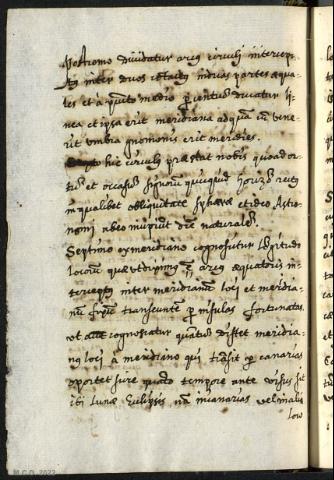 postremo dividatur arcus circuli intercep-
tus inter duos contactus in duas partes æqua-
les et à puncto medio per centrum ducatur li-
nea et ipsa erit meridiana ad quam cum vene-
rit umbra gnomonis erit meridies.
hic circulus præstat nobis quoad or-
tus et occasus signorum quicquid horizon rectus
in qualibet obliquitate sphæræ et ideo Astro-
nomi ab eo incipiunt diem naturalem.
Septimo ex meridiano cognoscitur longitudo
locorum quæ est arcus æquatoris in-
terceptus inter meridianum loci et meridia-
num transeuntem per insulas fortunatas.
ut autem cognoscatur quantum distet meridia-
nus loci à meridiano qui transit per canarias
oportet scire quando tempore ante visus sit
ibi lunæ Eclipsis nam in canarias vel in aliis
low